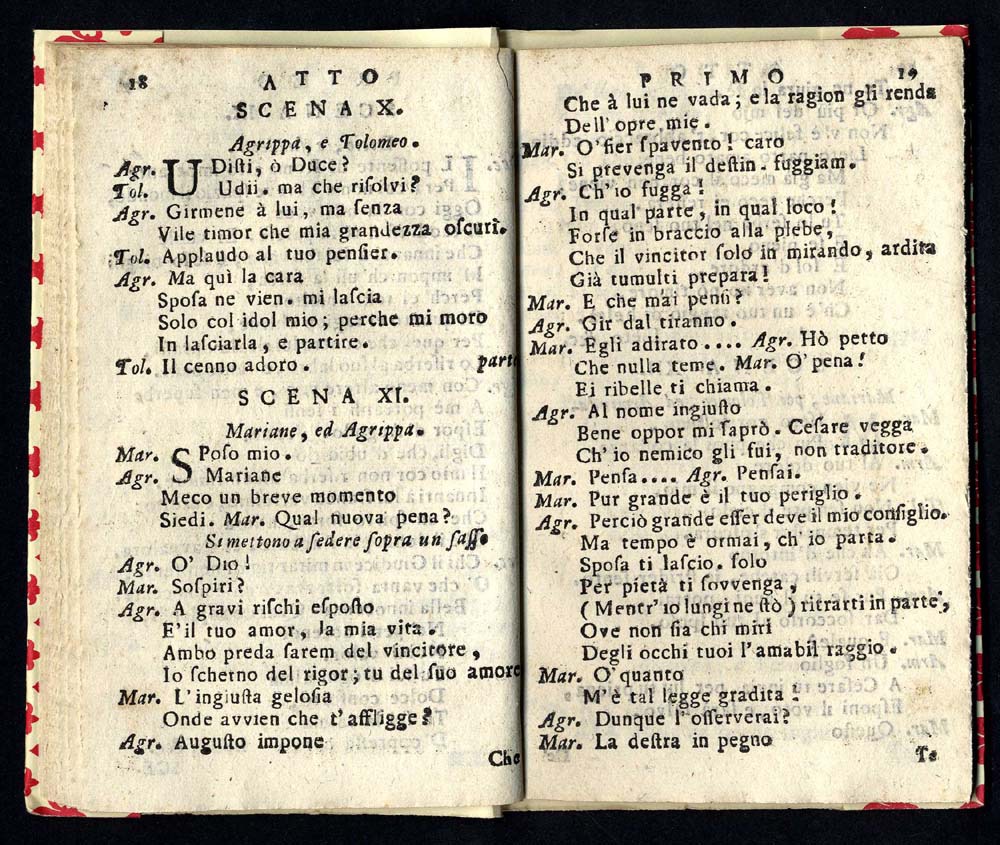 18 ATTO
SCENA X.
Agrippa, e Tolomeo.
Agr. UDiſti, ò Duce?
Tol. Udii. ma che riſolvi?
Agr. Girmene à lui, ma ſenza
Vile timor che mia grandezza oſcuri.
Tol. Applaudo al tuo penſier.
Agr. Ma quì la cara
Spoſa ne vien. mi laſcia
Solo col idol mio; perche mi moro
In laſciarla, e partire.
Tol. Il cenno adoro. parte
SCENA XI.
Mariane, ed Agrippa.
Mar. SPoſo mio.
Agr. Mariane
Meco un breve momento
Siedi. Mar. Qual nuova pena?
Si mettono a ſedere ſopra un ſaſſo
Agr. O' Dio!
Mar. Soſpiri?
Agr. A gravi riſchi eſpoſto
E'il tuo amor, la mia vita.
Ambo preda ſarem del vincitore,
Io ſcherno del rigor; tu del ſuo amore
Mar. L'ingiuſta geloſia
Onde avvien che t'affligge?
Agr. Auguſto impone
Che
PRIMO 19
Che à lui ne vada; e la ragion gli renda
Dell' opre mie.
Mar. O'fier ſpavento! caro
Si prevenga il deſtin. fuggiam.
Agr. Ch'io fugga!
In qual parte, in qual loco!
Forſe in braccio alla plebe,
Che il vincitor ſolo in mirando, ardita
Già tumulti prepara!
Mar. E che mai penſi?
Agr. Gir dal tiranno.
Mar. Egli adirato .... Agr. Hò petto
Che nulla teme. Mar. O' pena!
Ei ribelle ti chiama.
Agr. Al nome ingiuſto
Bene oppor mi ſaprò. Ceſare vegga
Ch'io nemico gli fui, non traditore.
Mar. Penſa.... Agr. Penſai.
Mar. Pur grande è il tuo periglio.
Agr. Perciò grande eſſer deve il mio conſiglio.
Ma tempo è ormai, ch'io parta.
Spoſa ti laſcio. ſolo
Per pietà ti ſovvenga,
( Mentr'io lungi ne ſtò ) ritrarti in parte,
Ove non ſia chi miri
Degli occhi tuoi l'amabil raggio.
Mar. O'quanto
M'è tal legge gradita!
Agr. Dunque l'oſſerverai?
Mar. La deſtra in pegno
Te